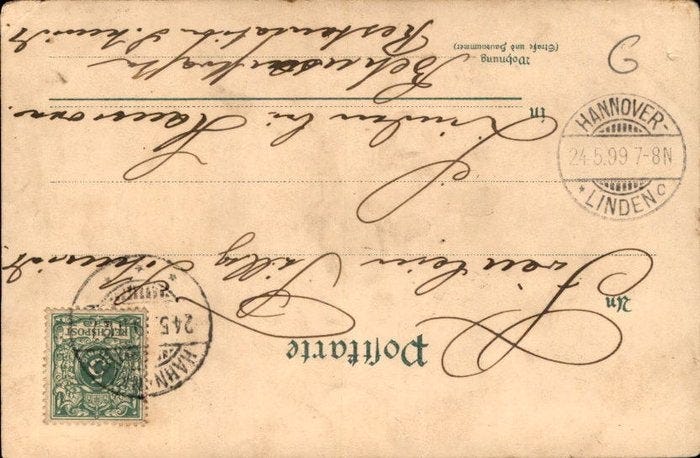 Postkarte
An Fräulein Tilly Schmidt
in Linden bei Hannover
Wohnung
(Straße und Hausnummer)
Restauration Schmidt
HANNOVER-
24.5.99 7-8N
* LINDEN c
REICHSPOST
5
24.5.
HANN